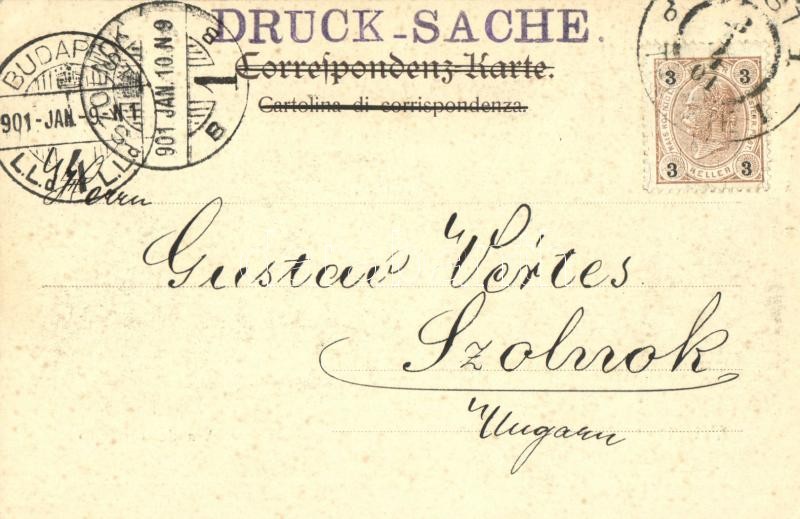 DRUCK-SACHE.
Correspondenz-Karte.
Cartolina di corrispondenza.
BUDAPEST
901-JAN.-9.
901 JAN.10.N9
B 1 B
3 3
3 3
HELLER
Herrn
Gustav Vértes
Szolnok
Ungarn